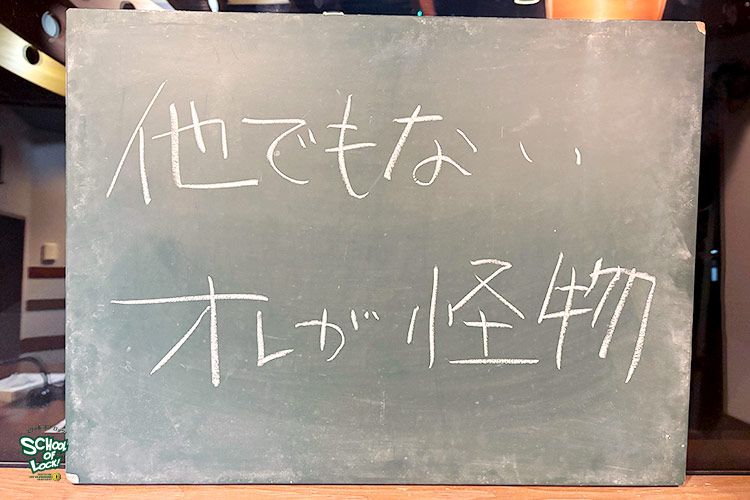 他でもない
オレが怪物
SCHOOL
OF
LOCK!